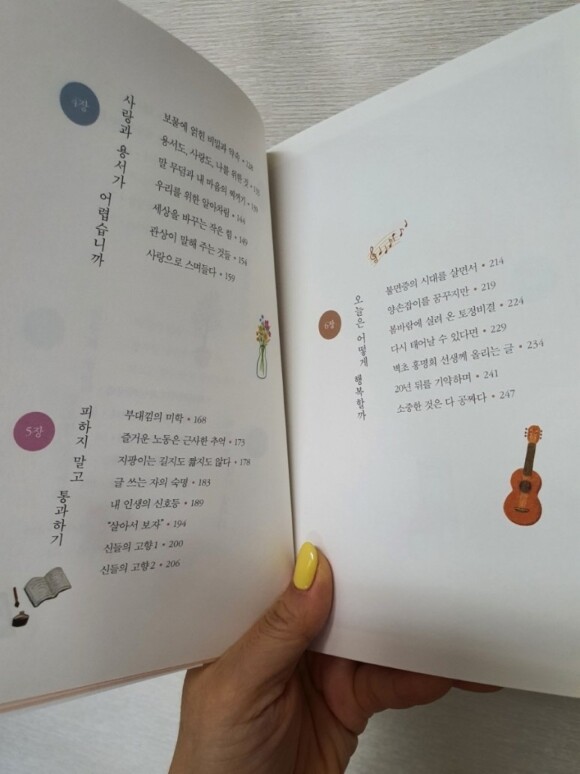 4장
사랑과 용서가 어렵습니까
보물에 얽힌 비밀과 약속 • 128
용서도, 사랑도, 나를 위한 것 • 133
말 무덤과 내 마음의 뼈꺾기 • 139
우리를 위한 알아차림 • 144
세상을 바꾸는 작은 힘 • 149
관상이 말해 주는 것들 • 154
사랑으로 스며들다 • 159
5장
피하지 말고 통과하기
부대낌의 미학 • 168
즐거운 노동은 근사한 추억 • 173
지팡이는 길지도 짧지도 않다 • 178
글 쓰는 자의 숙명 • 183
내 인생의 신호등 • 189
“살아서 보자” • 194
신들의 고향 1 • 200
신들의 고향 2 • 206
6장
오늘은 어떻게 행복할까
불면증의 시대를 살면서 • 214
양손잡이를 꿈꾸지만 • 219
봄바람에 실려 온 토정비결 • 224
다시 태어날 수 있다면 • 229
벽초 홍명희 선생께 올리는 글 • 234
20년 뒤를 기약하며 • 241
소중한 것은 다 공짜다 • 247